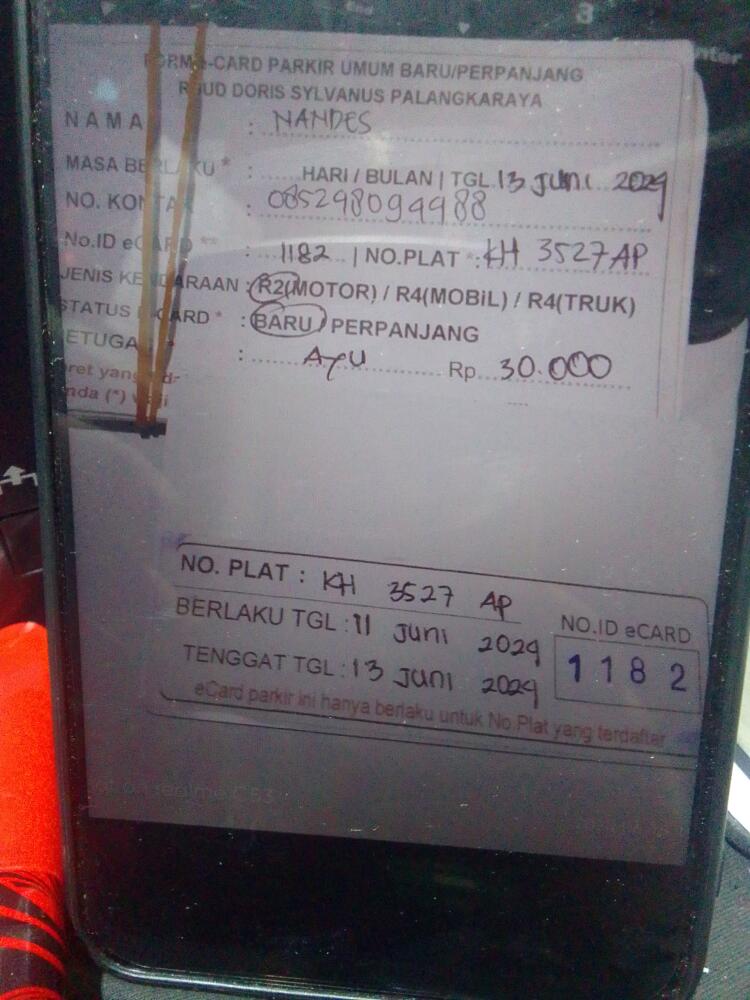 FORM e-CARD PARKIR UMUM BARU/PERPANJANG
RSUD DORIS SYLVANUS PALANGKARAYA
NAMA : NANDES
MASA BERLAKU * : HARI / BULAN | TGL. 13 Juni 2024
NO. KONTAK : 085298094988
No.ID eCARD ** : 1182 | NO.PLAT *: KH 3527 AP
JENIS KENDARAAN : R2(MOTOR) / R4(MOBiL) / R4(TRUK)
STATUS CARD * : BARU / PERPANJANG
PETUGAS * : Ayu Rp. 30.000
yang
(*)
NO. PLAT : KH 3527 AP
BERLAKU TGL : 11 Juni 2024
NO.ID eCARD
TENGGAT TGL : 13 Juni 2024
1182
eCard parkir ini hanya berlaku untuk No.Plat yang terdaftar
on realme C53